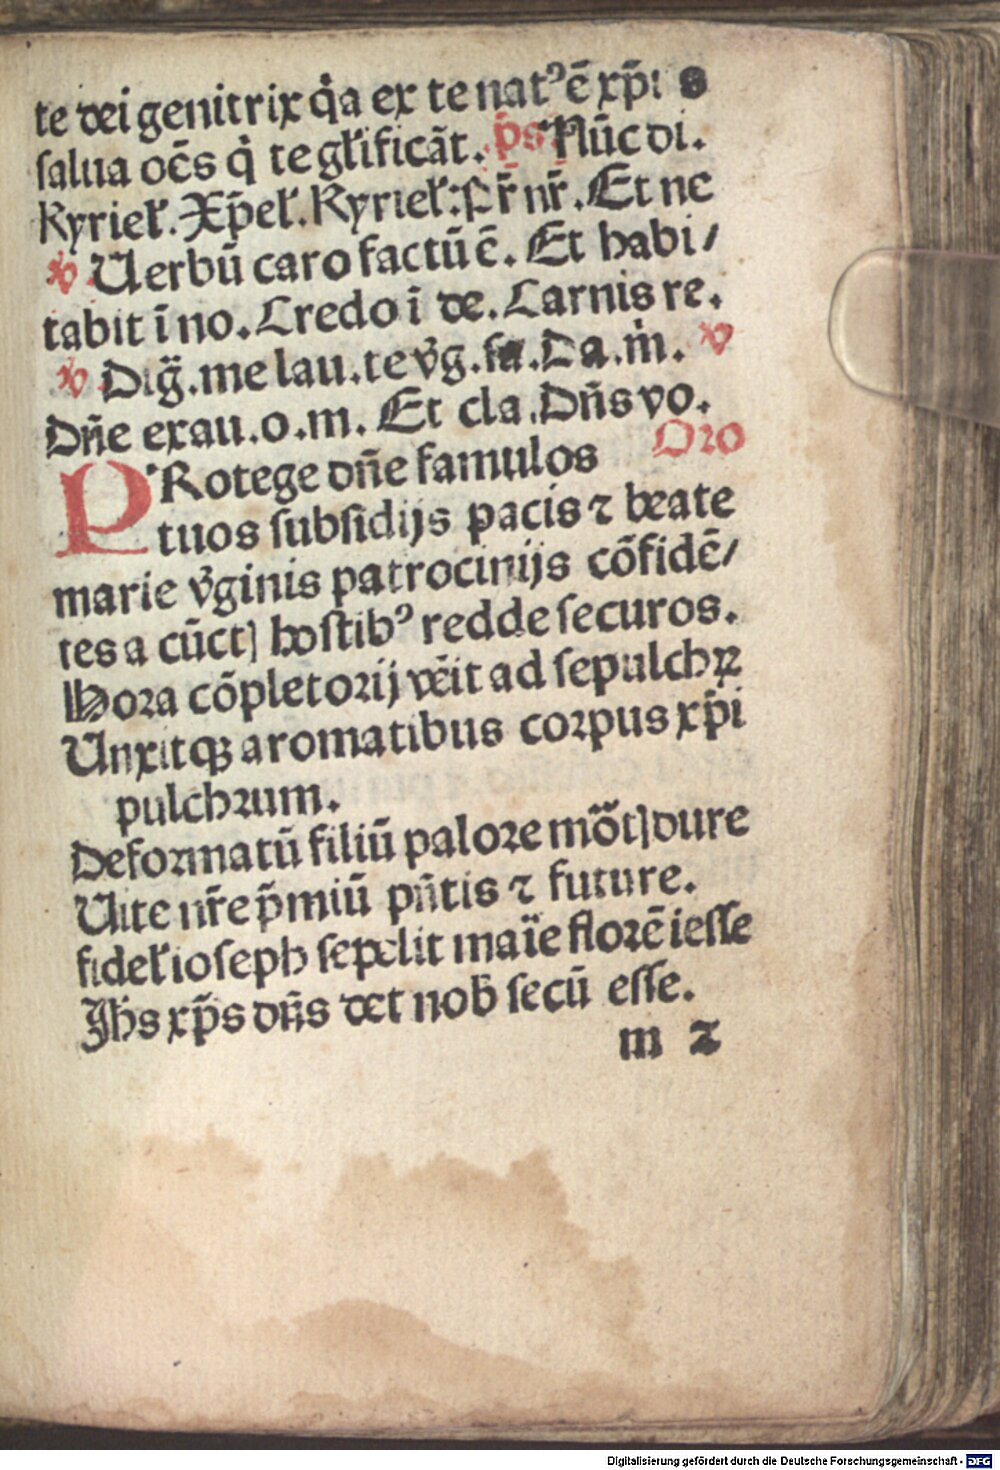 te dei genitrix q̇a ex te natꝰ ē xp̄i s
salua oēs q̇ te gl̓ificāt. p̄s Nūc di.
Kyriel̓. Xp̄el̓. Kyriel̓: Pr̄ nr̄. Et ne
℣ Uerbū caro factū ē. Et habi/
tabit ī no. Credo ī de. Carnis re.
℣ Dig̈. me lau. te v̓g. sa. Da. ṁ. ℣
Dn̄e exau. o. m. Et cla. Dn̄s vo.
Oꝛo
PRotege dn̄e famulos
tuos subsidijs pacis ⁊ beate
marie v̓ginis patrocinijs cōfidē/
tes a cūctꝭ hostibꝰ redde securos.
Hoꝛa cōpletoꝛij vēit ad sepulchꝝ
Unxitqꝫ aromatibus coꝛpus xp̄i
pulchꝛum.
Defoꝛmatū filiū paloꝛe mōtꝭ dure
Uite nr̄e p̄miū pn̄tis ⁊ future.
fidel̓ ioseph sepelit maïe floꝛē iesse
Jh̄s xp̄s dn̄s det nob̄ secū esse.
m 2
Digitalisierung gefördert durch die Deutsche Forschungsgemeinschaft - DFG